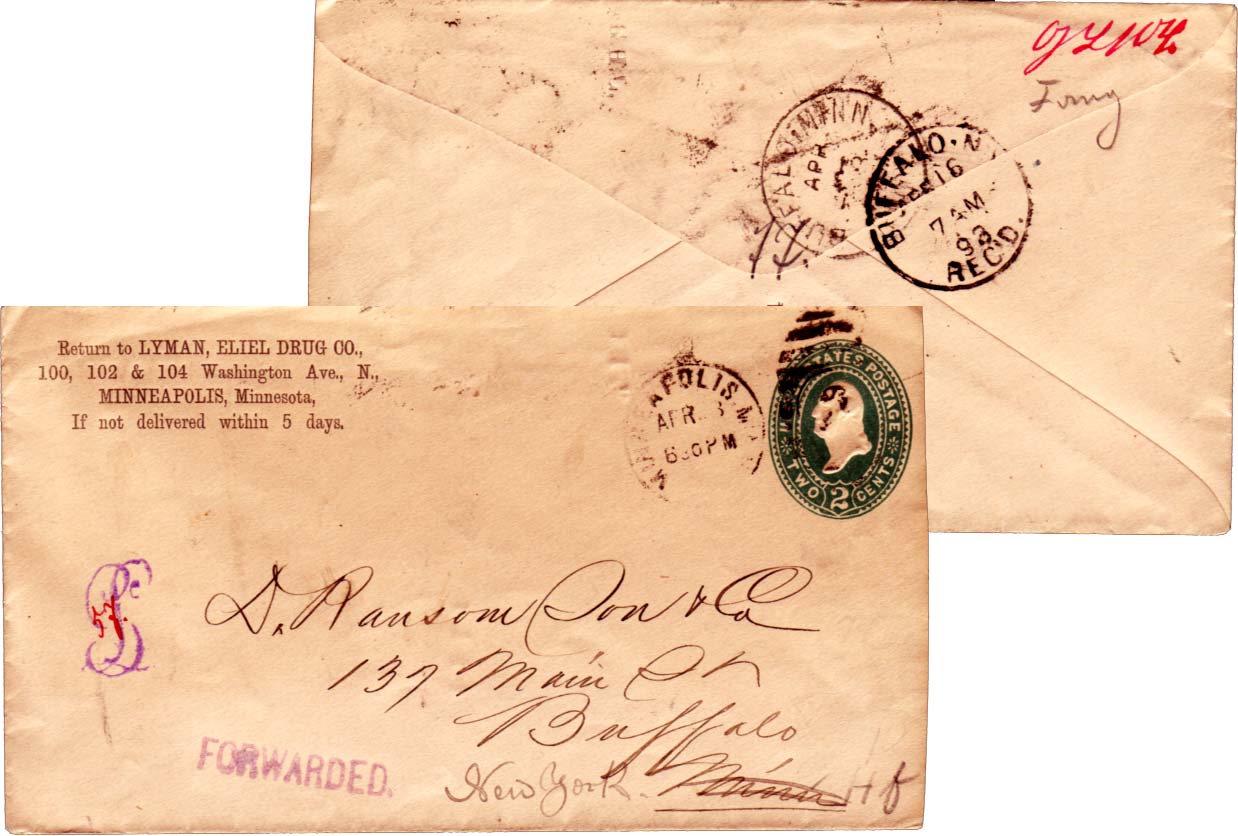 BUFFALO, MINN.
APR
BUFFALO. N
16
7 AM
93
REC'D.
Return to LYMAN, ELIEL DRUG CO.,
100, 102 & 104 Washington Ave., N.,
MINNEAPOLIS, Minnesota,
If not delivered within 5 days.
APOLIS. M
APR
630PM
STATES POSTAGE
TWO 2 CENTS
57.
D. Ransom Son & Co
137 Main St
Buffalo
New York. Minn
FORWARDED.